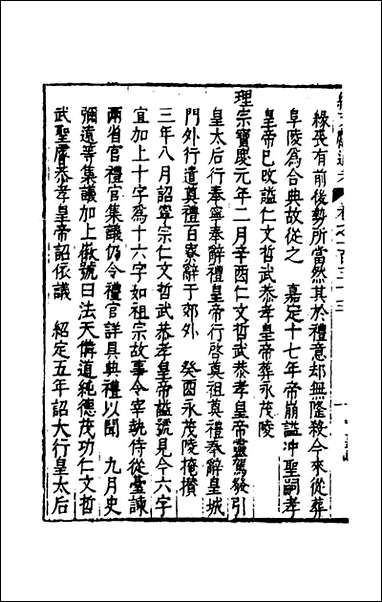 緣喪有前後勢所當然其於禮意却無隆殺今來從葬
阜陵爲合典故從之　嘉定十七年帝崩謚冲聖嗣孝
皇帝已改謚仁文哲武恭孝皇帝葬永茂陵
理宗寶慶元年二月辛酉仁文哲武恭孝皇帝靈駕發引
皇太后行奉寧奉辭禮皇帝行啓奠祖奠禮奉辭皇城
門外行遣奠禮百寮辭于郊外　癸酉永茂陵掩攢
三年八月詔寧宗仁文哲武恭孝皇帝謚號見今六字
宜加上十字爲十六字如祖宗故事令宰執侍從臺諫
兩省官禮官集議仍令禮官詳具典禮以聞　九月史
彌遠等集議加上徽號曰法天備道純德茂功仁文哲
武聖睿恭孝皇帝詔依議　紹定五年詔大行皇太后